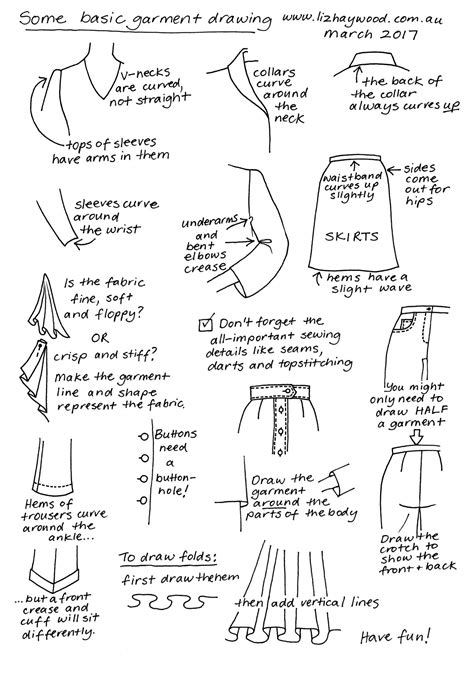 Some basic garment drawing
www.lizhaywood.com.au
march 2017
v-necks
are curved,
not straight
tops of sleeves
have arms in them
collars
curve
around
the
neck
the back of
the collar
always curves up
sleeves curve
around
the wrist
underarms
and
bent
elbows
crease
waistband
curves up
slightly
sides
come
out for
hips
SKIRTS
hems have a
slight wave
Is the fabric
fine, soft
and floppy?
OR
crisp and stiff?
Make the garment
line and shape
represent the fabric.
Don't forget the
all-important sewing
details like seams,
darts and topstitching
You might
only need to
draw HALF
a garment
Hems of
trousers curve
around the
ankle...
Buttons
need
a
button-
hole!
Draw the
garment
around the
parts of the body
Draw the
crotch to
show the
front + back
...but a front
crease and
cuff will sit
differently.
To draw folds:
first draw the hem
then add vertical lines
Have fun!